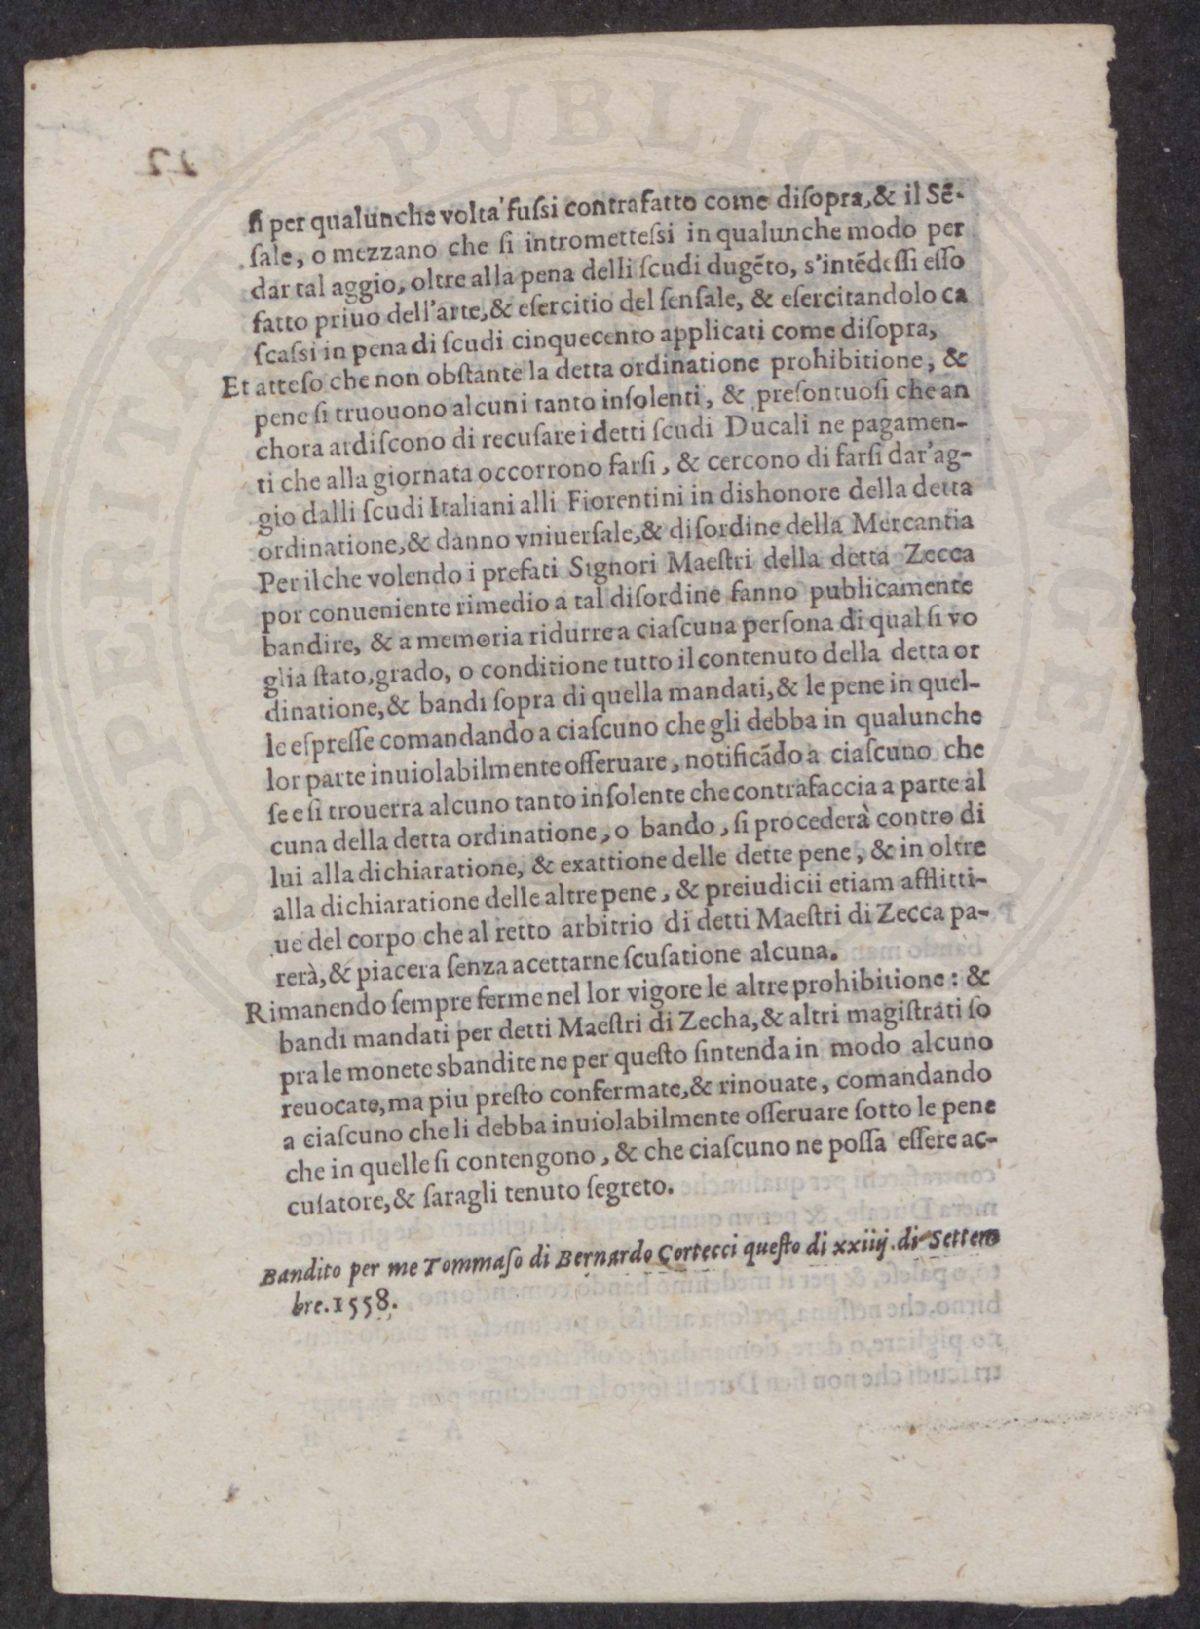 ſi per qualunche volta' fuſsi contrafatto come diſopra, & il Sẽ-
ſale, o mezzano che ſi intrometteſsi in qualunche modo per
dar tal aggio, oltre alla pena delli ſcudi dugẽto, s'intẽdeſſi eſſo
fatto priuo dell'arte, & eſercitio del ſenſale, & eſercitandolo ca
ſcaſsi in pena di ſcudi cinquecento applicati come diſopra,
Et atteſo che non obſtante la detta ordinatione prohibitione, &
pene ſi truouono alcuni tanto inſolenti, & preſontuoſi che an
chora ardiſcono di recuſare i detti ſcudi Ducali ne pagamen-
ti che alla giornata occorrono farſi, & cercono di farſi dar'ag-
gio dalli ſcudi Italiani alli Fiorentini in dishonore della detta
ordinatione, & danno vniuerſale, & diſordine della Mercantia
Per ilche volendo i prefati Signori Maeſtri della detta Zecca
por conueniente rimedio a tal diſordine fanno publicamente
bandire, & a memoria ridurre a ciaſcuna perſona di qual ſi vo
glia ſtato, grado, o conditione tutto il contenuto della detta or
dinatione, & bandi ſopra di quella mandati, & le pene in quel-
le eſpreſſe comandando a ciaſcuno che gli debba in qualunche
lor parte inuiolabilmente oſſeruare, notificãdo a ciaſcuno che
ſe e ſi trouerra alcuno tanto inſolente che contrafaccia a parte al
cuna della detta ordinatione, o bando, ſi procederà contro di
lui alla dichiaratione, & exattione delle dette pene, & in oltre
alla dichiaratione delle altre pene, & preiudicii etiam afflitti-
ue del corpo che al retto arbitrio di detti Maeſtri di Zecca pa-
rerà, & piacera ſenza acettarne ſcuſatione alcuna.
Rimanendo ſempre ferme nel lor vigore le altre prohibitione: &
bandi mandati per detti Maeſtri di Zecha, & altri magiſtrati ſo
pra le monete sbandite ne per queſto ſintenda in modo alcuno
reuocate, ma piu preſto confermate, & rinouate, comandando
a ciaſcuno che li debba inuiolabilmente oſſeruare ſotto le pene
che in quelle ſi contengono, & che ciaſcuno ne poſſa eſſere ac-
cuſatore, & ſaragli tenuto ſegreto.
Bandito per me Tommaſo di Bernardo Cortecci queſto di xxiiij. di Settem
bre. 1558.